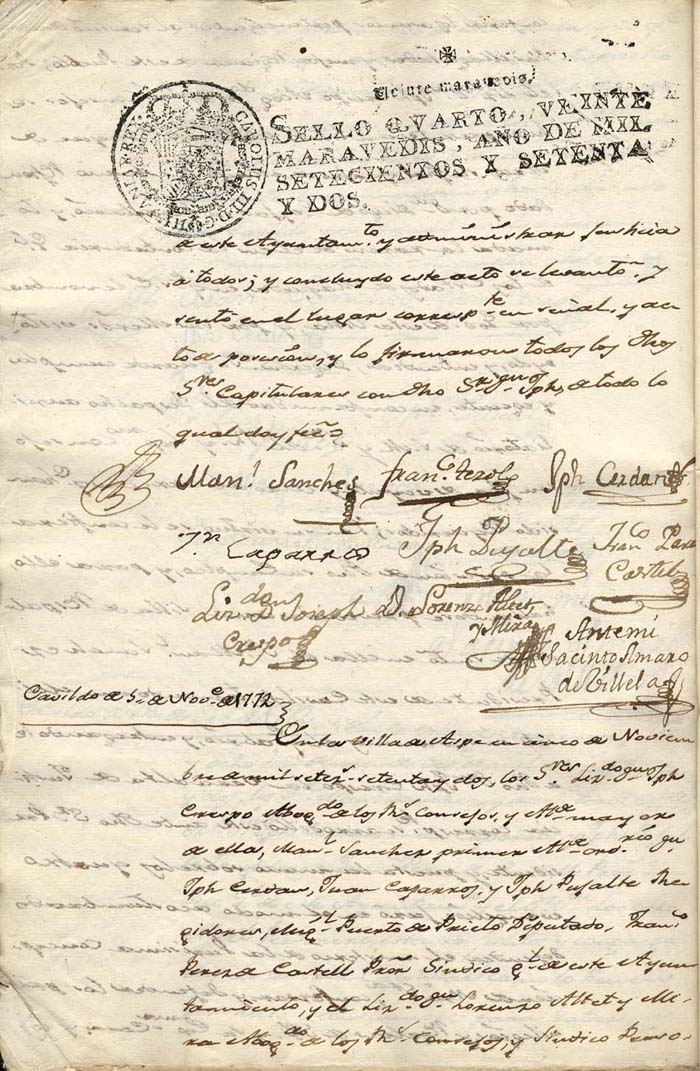 Veinte maravedis.
SELLO QVARTO, VEINTE
MARAVEDIS, AÑO DE MIL
SETECIENTOS Y SETENTA
Y DOS.
CAROLUS III D. G. HISPANIAR REX
a este Ayuntam.to y administrar Justicia
a todos; y concluydo este acto se levantó, y
sentó en el lugar corresp.te en señal, y ac-
to de posecion, y lo firmaron todos los dhos
S.res Capitulares con dho S.r Jph, de todo lo
qual doy feé
Man.l Sanches Fran.co Terol Jph Cerdan
Jn Caparros Jph Pujalte Fran.co Perez
Castell
Liz.do Dn Joseph D. Lorenzo Altet
Crespo y Mira
Antemi
Jacinto Amaro
de Villela
Cavildo de 5 de Nov.e de 1772
En la Villa de Aspe en cinco de Noviem
bre de mil setez.s setenta y dos, los S.res Liz.do Dn Jph
Crespo Abog.do de los R.s Consejos, y Alc.e mayor
de ella, Man.l Sanches primer Alc.e ord.rio
Jph Cerdan, Juan Caparros, y Jph Pujalte Re
gidores, Mig.l Puerto de Prieto Diputado, Fran.co
Perez de Castell Pror Sindico g.l de este Ayun
tamiento, y el Liz.do Dn Lorenzo Altet y Mi-
ra Abog.do de los R.s Consejos, y Sindico Perso-